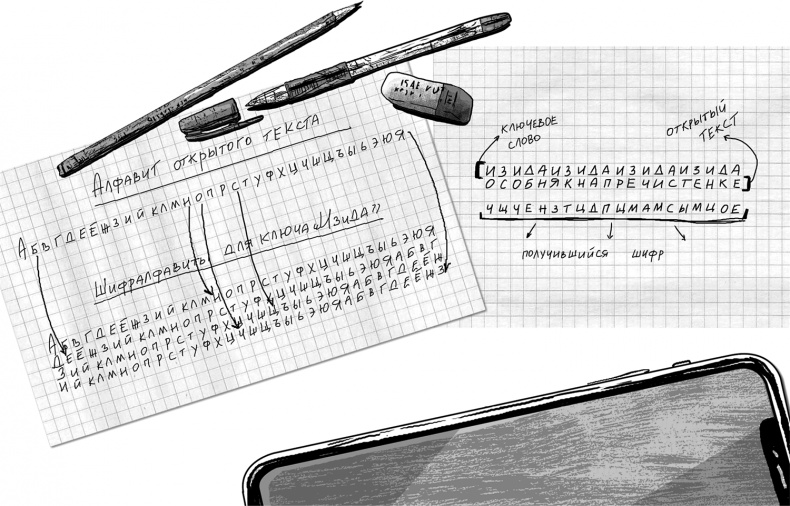 АЛФАВИТ ОТКРЫТОГО ТЕКСТА
АБВГДЕЁЖЗИЙКЛМНОПРСТУФХЦЧШЩЪЫЬЭЮЯ
ШИФРАЛФАВИТЫ ДЛЯ КЛЮЧА «ИЗИДА»
АБВГДЕЁЖЗИЙКЛМНОПРСТУФХЦЧШЩЪЫЬЭЮЯ
ДЕЁЖЗИЙКЛМНОПРСТУФХЦЧШЩЪЫЬЭЮЯАБВГ
ЗИЙКЛМНОПРСТУФХЦЧШЩЪЫЬЭЮЯАБВГДЕЁЖ
ИЙКЛМНОПРСТУФХЦЧШЩЪЫЬЭЮЯАБВГДЕЁЖЗ
КЛЮЧЕВОЕ
СЛОВО
ОТКРЫТЫЙ
ТЕКСТ
ИЗИДАИЗИДАИЗИДАИЗИДА
ОСОБНЯКНАПРЕЧИСТЕНКЕ
ЧЩЧЕНЗТЦДПЦМАМСЫМЦОЕ
ПОЛУЧИВШИЙСЯ ШИФР